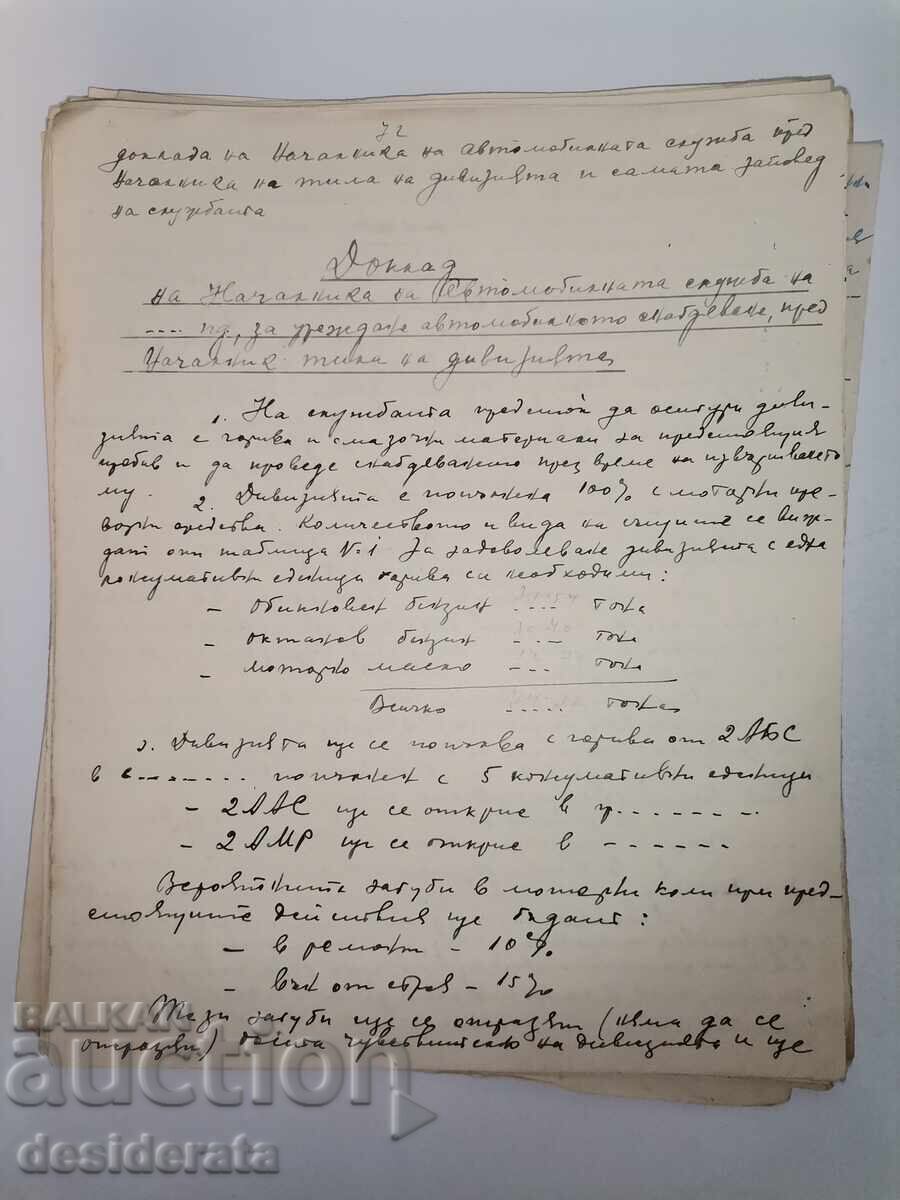 72
доклада на Началника на автомобилната служба пред
Началника на тила на дивизията и самата заповед
на службата
Доклад
на Началника на Автомобилната служба на
.... пд, за уреждане автомобилното снабдяване, пред
Началник тила на дивизията
1. На службата предстои да осигури диви-
зията с горива и смазочни материали за предстоящия
пробив и да проведе снабдяването през време на извършването
му.
2. Дивизията е попълнена 100% с моторни пре-
возни средства. Количеството и вида на същите се виж-
дат от таблица №1 За задоволяване дивизията с една
консумативна единица горива са необходими:
- Обикновен бензин .... тона
- октанов бензин .... тона
- моторно масло .... тона
Всичко ..... тона
3. Дивизията ще се попълва с горива от 2 АБС
в с........ попълнен с 5 консумативни единици
- 2 ААС ще се открие в гр........
- 2 АМР ще се открие в ------
Вероятните загуби в моторни коли при пред-
стоящите действия ще бъдат:
- в ремонт - 10%
- вън от строя - 15%
Тези загуби ще се отразят (няма да се
отразят) доста чувствително на дивизията и ще
BALKAN
auction
desiderata